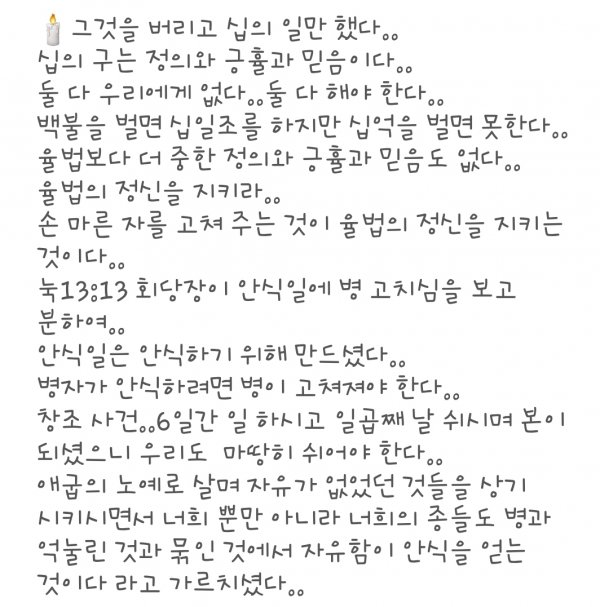 🕯 그것을 버리고 십의 일만 했다..
십의 구는 정의와 긍휼과 믿음이다..
둘 다 우리에게 없다..둘 다 해야 한다..
백불을 벌면 십일조를 하지만 십억을 벌면 못한다..
율법보다 더 중한 정의와 긍휼과 믿음도 없다..
율법의 정신을 지키라..
손 마른 자를 고쳐 주는 것이 율법의 정신을 지키는
것이다..
눅13:13 회당장이 안식일에 병 고치심을 보고
분하여..
안식일은 안식하기 위해 만드셨다..
병자가 안식하려면 병이 고쳐져야 한다..
창조 사건..6일간 일 하시고 일곱째 날 쉬시며 본이
되셨으니 우리도 마땅히 쉬어야 한다..
애굽의 노예로 살며 자유가 없었던 것들을 상기
시키시면서 너희 뿐만 아니라 너희의 종들도 병과
억눌린 것과 묶인 것에서 자유함이 안식을 얻는
것이다 라고 가르치셨다..